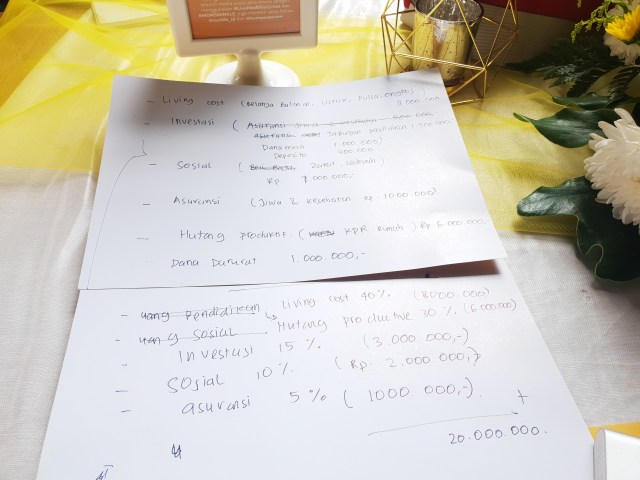 - Living cost (Belanja Bulanan, Listrik, Pulsa, ongkos)
8.000.000
- Investasi (Asuransi Jiwa & kesehatan 500.000
Asuransi Tabungan pendidikan 1.500.000
Dana 1.000.000)
Deposito 500.000
- Sosial ( Zakat, )
Rp 2.000.000,-
- Asuransi (Jiwa & kesehatan Rp. 1000.000)
- Hutang Produktif. ( KPR Rumah) Rp 6.000.000
- Dana Darurat 1.000.000,-
- uang Pendidikan Living cost 40% (8000.000)
- uang sosial Hutang productive 30% (6.000.000)
- Investasi 15% (3.000.000,-)
- Sosial 10% (Rp. 2.000.000,-)
- asuransi 5% (1000 000,-)
+
20.000.000.